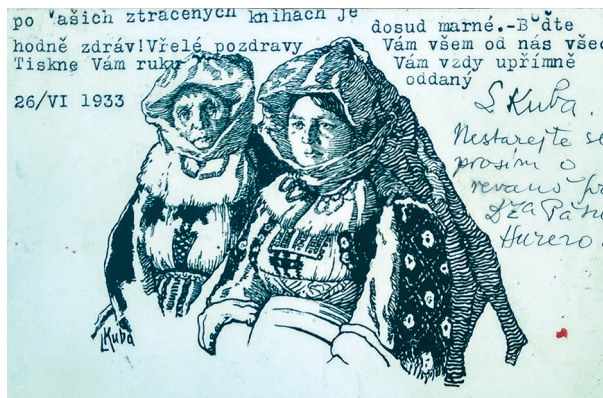 po Vašich ztracených knihách je dosud marné.-Buďte
hodně zdráv!Vřelé pozdravy Vám všem od nás všec
Tiskne Vám ruku Vám vždy upřímně
oddaný
26/VI 1933
L. Kuba.
Nestarejte se
prosím o
LKuba